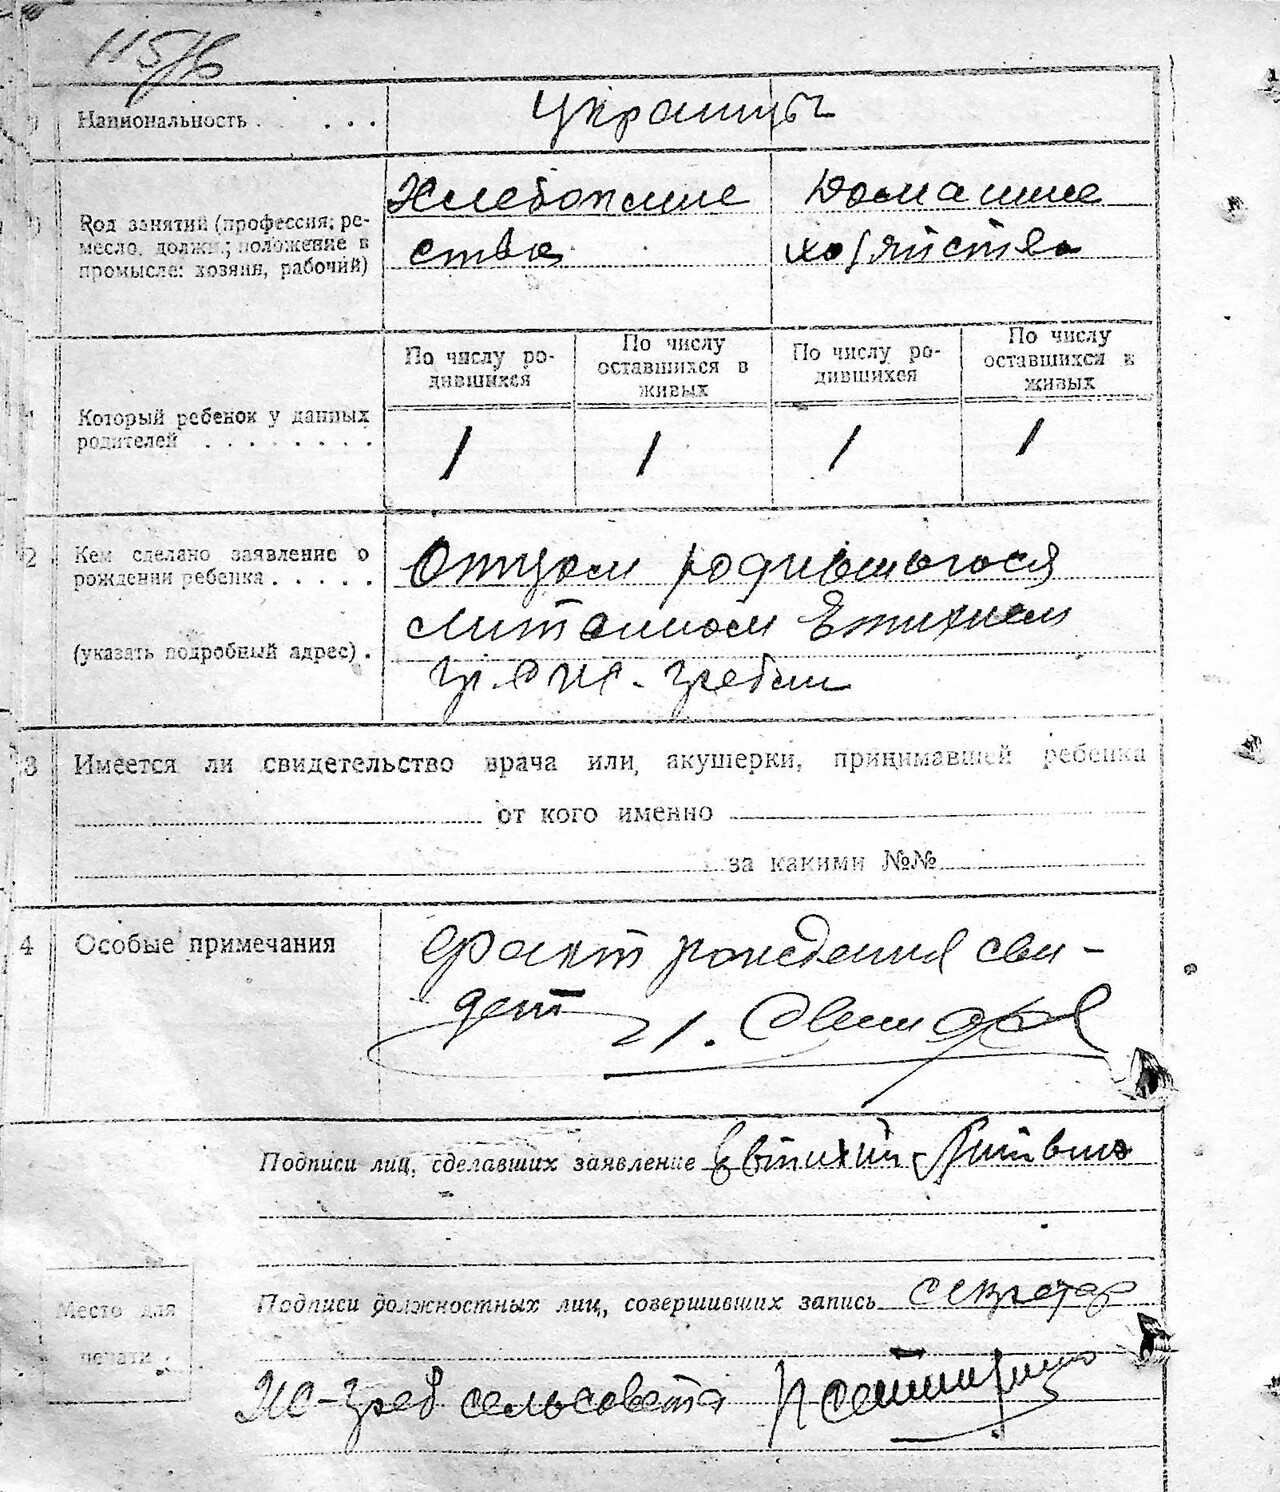 Национальность . . . .
украинцы
Род занятий (профессия; ре-
месло, должн.; положение в
промысле: хозяин, рабочий)
Хлебопаше
ство
Домашнее
хозяйство
Который ребенок у данных
родителей . . . . . . . .
По числу ро-
дившихся
По число
оставшихся в
живых
По числу ро-
дившихся
По числу
оставшихся в
живых
1 1 1 1
2 Кем сделано заявление о
рождении ребенка . . . . .
(указать подробный адрес) .
Отцом родившегося
3 Имеется ли свидетельство врача или акушерки, принимавшей ребенка
от кого именно
за какими №№
4 Особые примечания
факт рождения сви-
дет
Подписи лиц, сделавших заявление
Подписи должностных лиц, совершивших запись секретар
Место для
печати
сельсовета